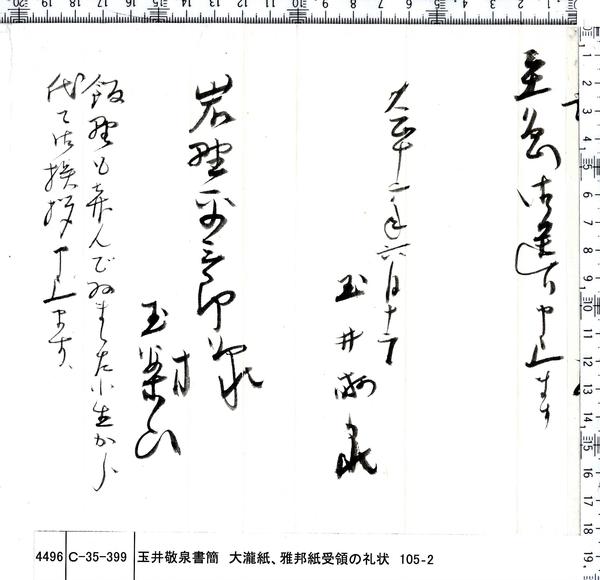 至急御送り申上ます
大正十二年六月十二
玉井敬泉
岩野平三郎様
玉村案山
飯野も喜んでゐました小生から
代て御挨拶申上ます、
4496 C-35-399 玉井敬泉書簡 大瀧紙、雅邦紙受領の礼状 105-2